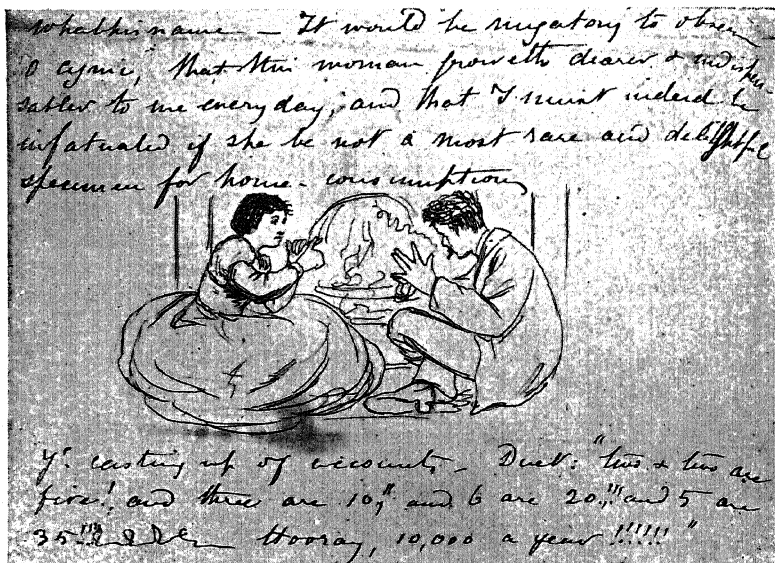 whathisname — It would be nugatory to observe
O cynic, that this woman groweth dearer & indispen-
sabler to me everyday, and that I must indeed be
infatuated if she be not a most rare and delightful
specimen for home-consumption
Yᵉ casting up of accounts — Duet: "two & two are
five! and three are 10,!! and 6 are 20!!! and 5 are
35!!!! &c &c &c Hooray, 10,000 a year !!!!!! "